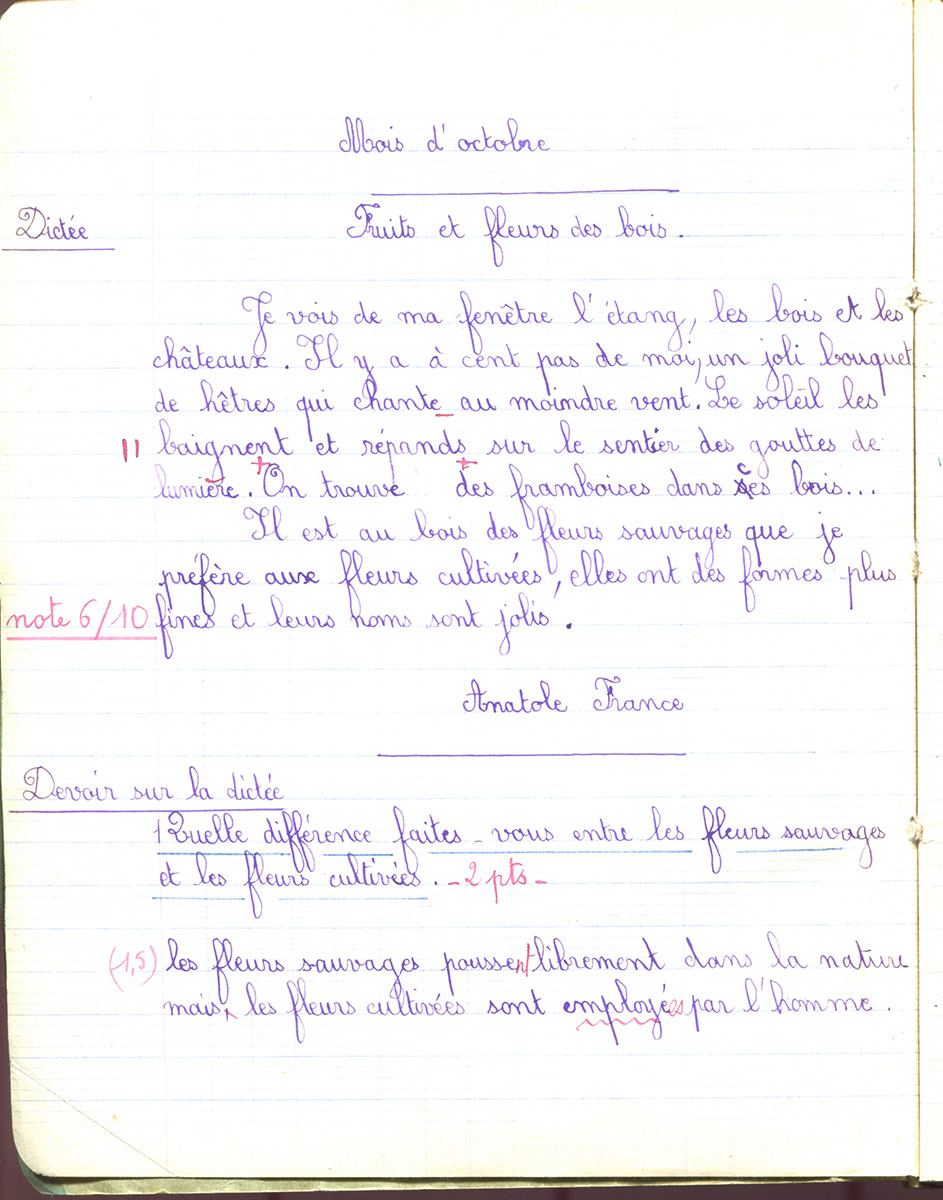 Mois d'octobre
Dictée
Fruits et fleurs des bois.
Je vois de ma fenêtre l'étang, les bois et les
châteaux. Il y a à cent pas de moi, un joli bouquet
de hêtres qui chante au moindre vent. Le soleil les
baignent et répands sur le sentier des gouttes de
lumière. On trouve des framboises dans ces bois...
Il est au bois des fleurs sauvages que je
préfère aux fleurs cultivées, elles ont des formes plus
note 6/10 fines et leurs noms sont jolis.
Anatole France
Devoir sur la dictée
1 Quelle différence faites-vous entre les fleurs sauvages
et les fleurs cultivées. - 2 pts -
(1,5) les fleurs sauvages poussent librement dans la nature
mais, les fleurs cultivées sont employées par l'homme.